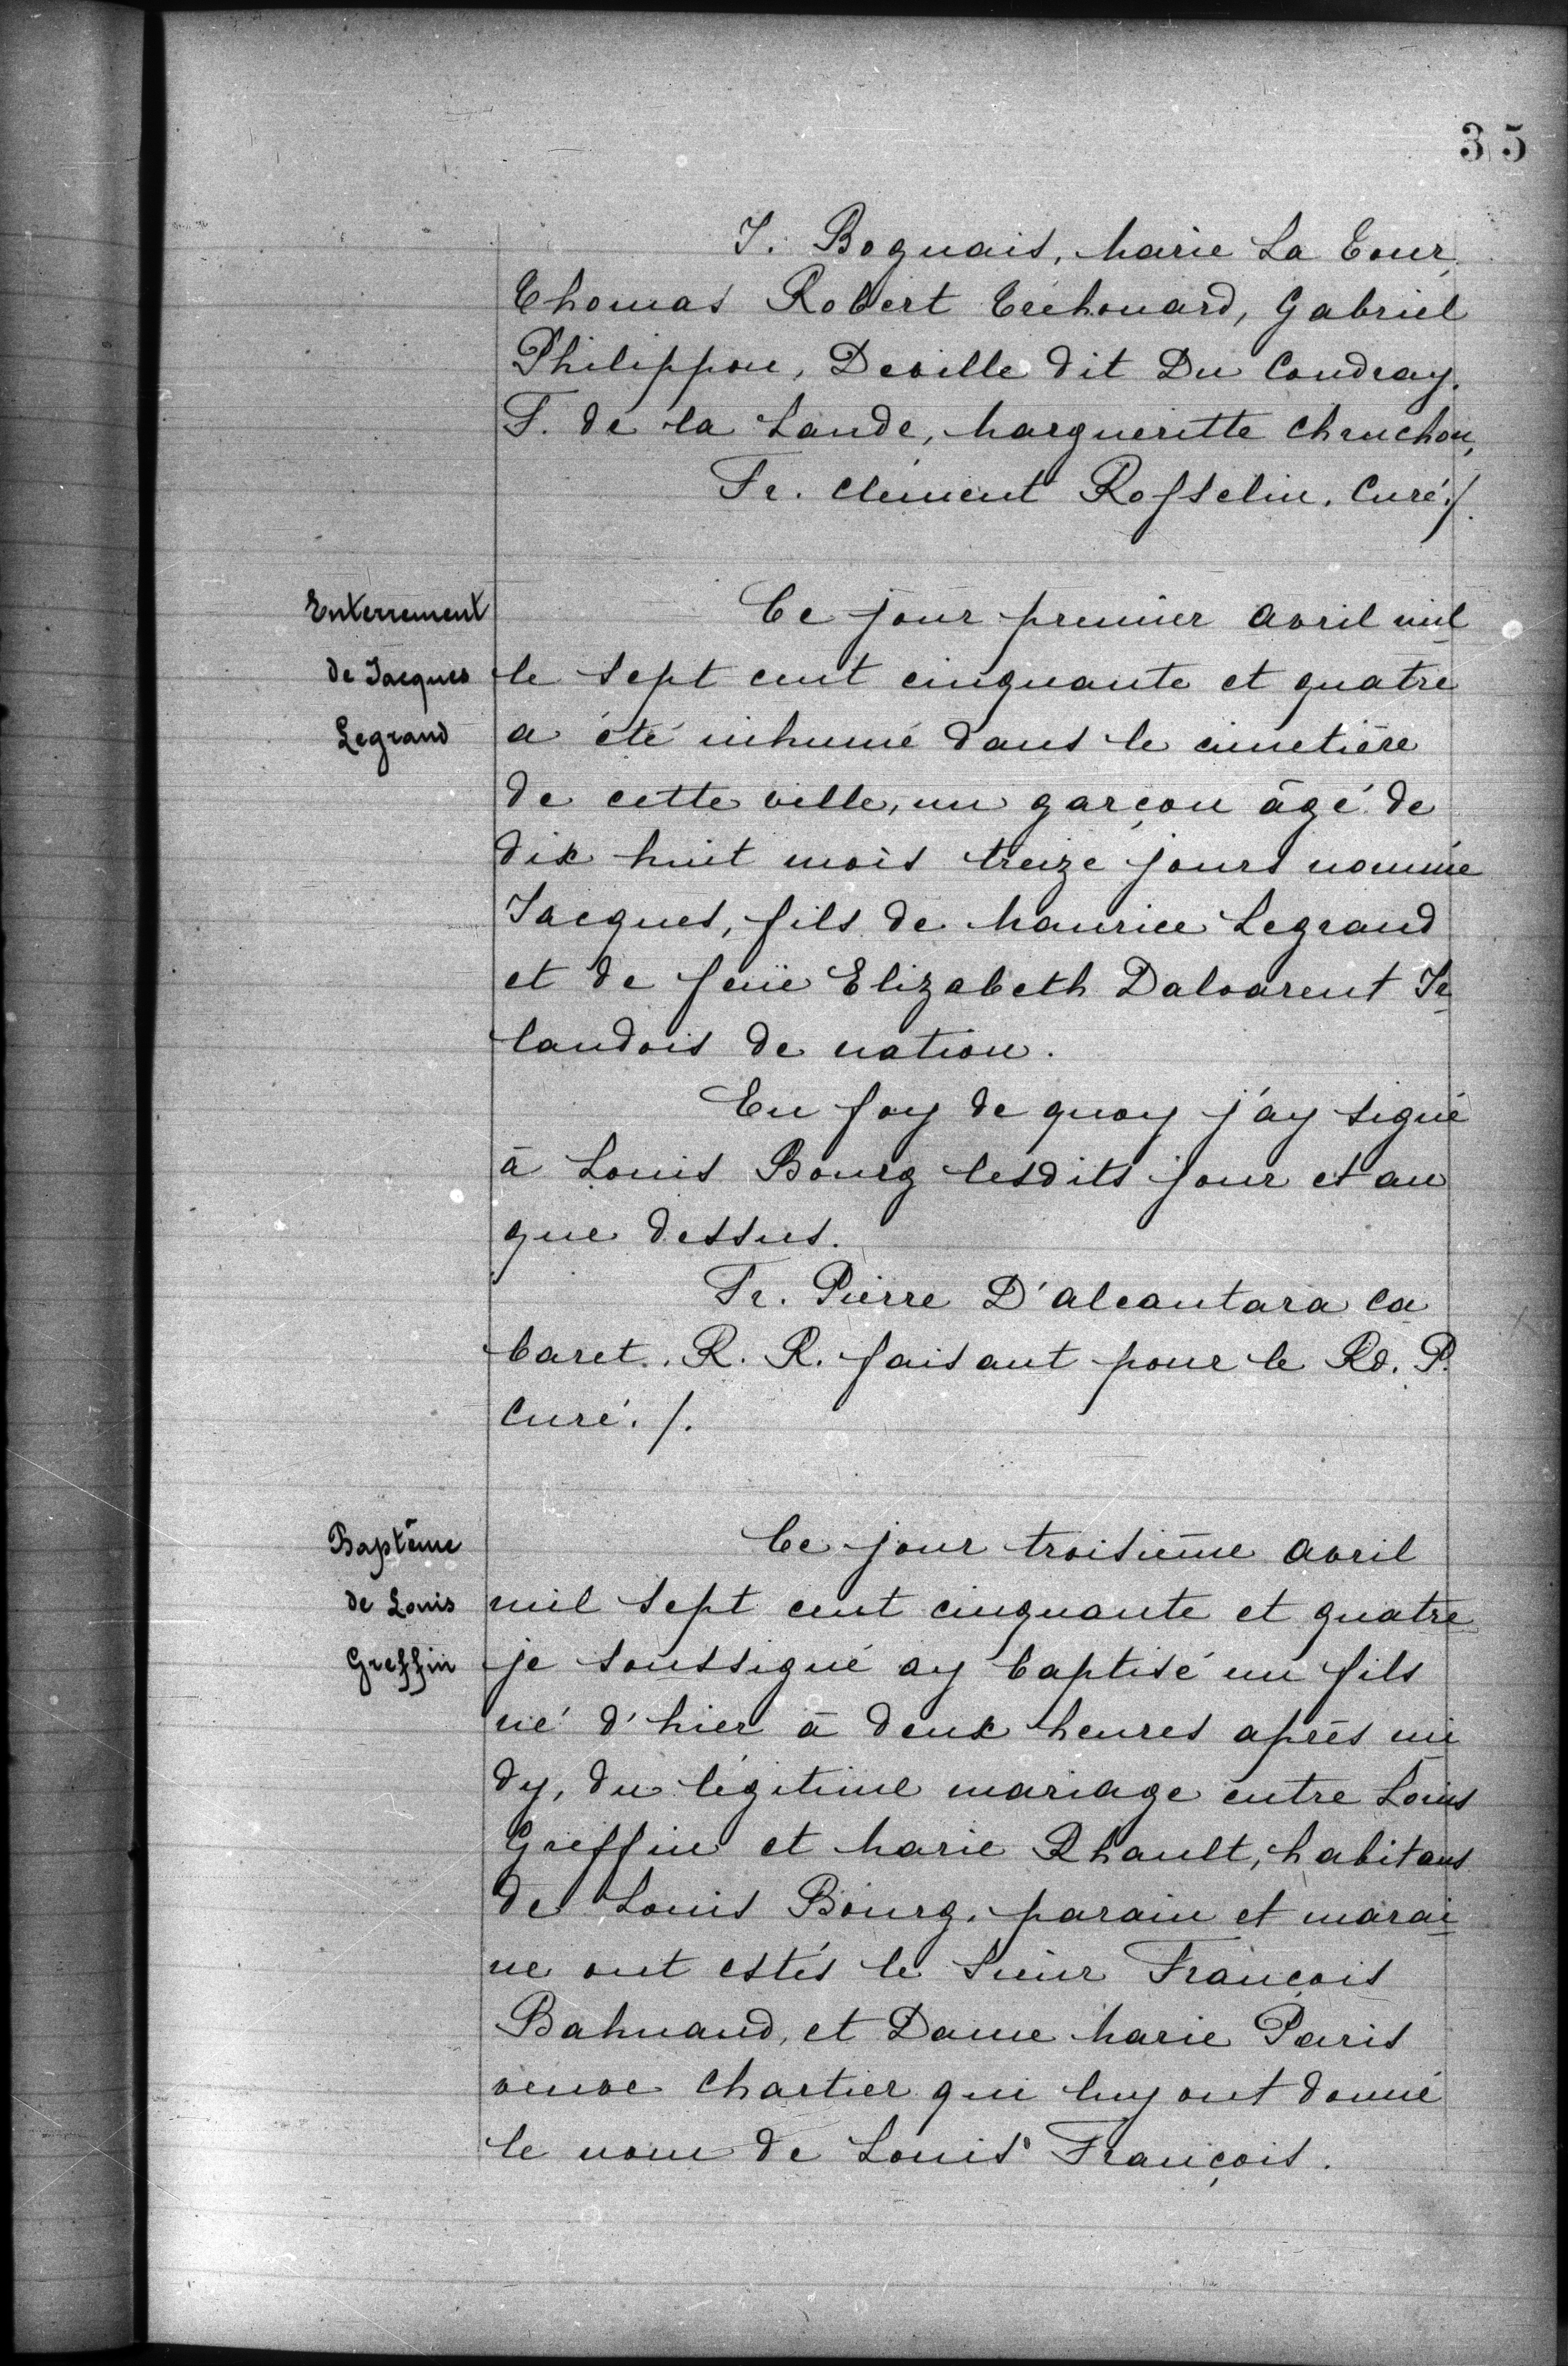 35
J. Boguais, Marie La Tour,
Thomas Robert Tréhouard, Gabriel
Philippon, Deville dit Du Coudray.
F. de la Lande, Marguerite Chruchon,
Fr. Clément Rosselin. Curé./.
Enterrement
de Jacques
Legrand
Ce jour premier avril mil
le sept cent cinquante et quatre
a été inhumé dans le cimetière
de cette ville, un garçon âgé de
dix huit mois treize jours nommé
Jacques, fils de Maurice Legrand
et de feüe Elizabeth Dalvarent Ir
landois de nation.
En foy de quoy j'ay signé
à Louis Bourg lesdits jour et an
que dessus.
Fr. Pierre D'alcantara Ca
baret. R. R. faisant pour le Rd. P.
Curé./.
Baptême
de Louis
Greffin
Ce jour troisième avril
mil sept cent cinquante et quatre
je soussigné ay baptisé un fils
né d'hier à deux heures après mi
dy, du légitime mariage entre Louis
Greffin et Marie Rhault, habitans
de Louis Bourg. parain et marai
ne ont estés le Sieur François
Bahuaud, et Dame Marie Paris
veuve Chartier qui luy ont donné
le nom de Louis François.